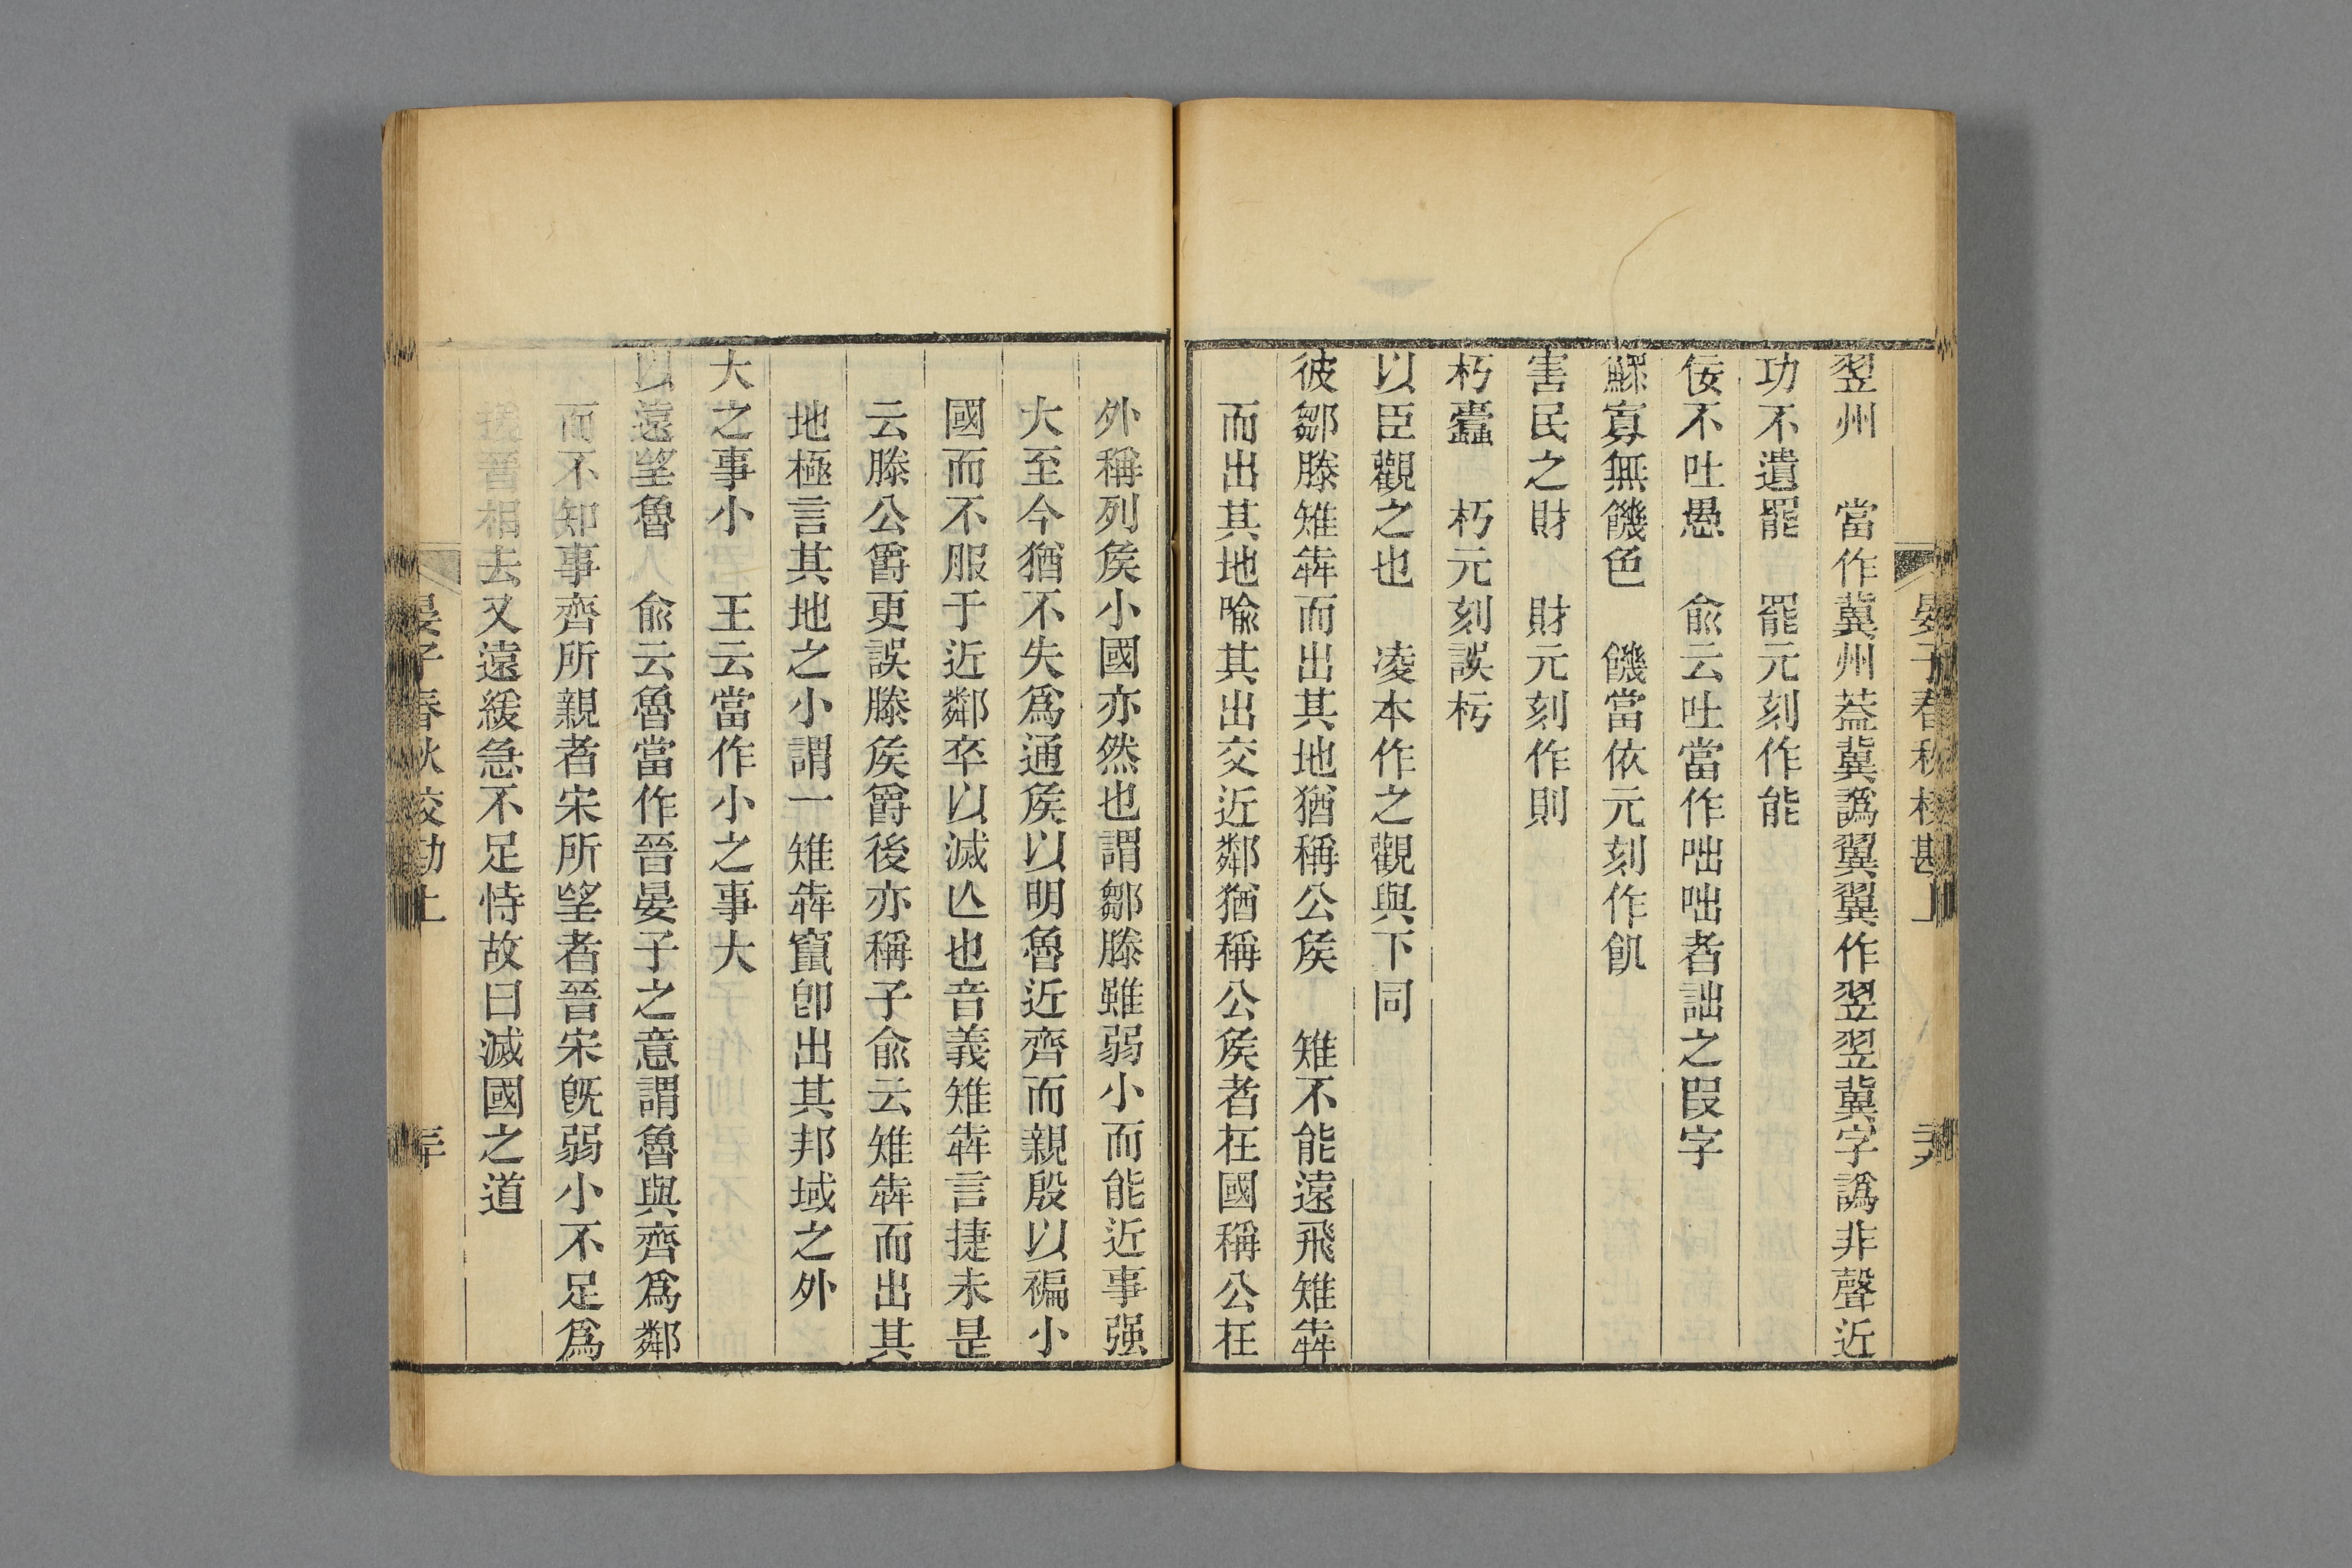 晏子春秋校勘上
翌州　當作冀州葢冀譌翼翼作翌翌冀字譌非聲近
功不遺罷　罷元刻作能
佞不吐愚　兪云吐當作咄咄者詘之叚字
鰥寡無饑色　饑當依元刻作飢
害民之財　財元刻作則
朽蠹　朽元刻誤杇
以臣觀之也　凌本作之觀與下同
彼鄒滕雉犇而出其地猶稱公矦　雉不能遠飛雉犇
而出其地喩其出交近鄰猶稱公矦者在國稱公在
外稱列矦小國亦然也謂鄒滕雖弱小而能近事强
大至今猶不失爲通矦以明魯近齊而親殷以褊小
國而不服于近鄰卒以滅亾也音義雉犇言捷未是
云滕公爵更誤滕矦爵後亦稱子兪云雉犇而出其
地極言其地之小謂一雉犇竄卽出其邦域之外
大之事小　王云當作小之事大
以遠望魯　兪云魯當作晉晏子之意謂魯與齊爲鄰
而不知事齊所親者宋所望者晉宋旣弱小不足爲
援晉相去又遠緩急不足恃故曰滅國之道
晏子春秋校勘上